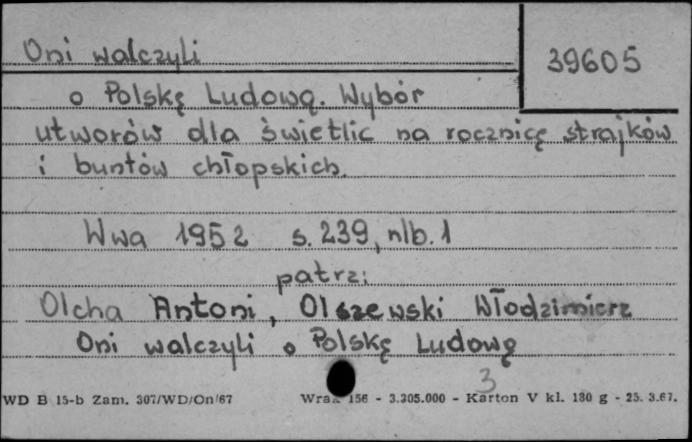 Oni walczyli
39605
o Polskę Ludową. Wybór
utworów dla świetlic na rocznicę strajków
i buntów chłopskich.
Wwa 1952 s. 239, nlb. 1
patrz:
Olcha Antoni, Olszewski Włodzimierz
Oni walczyli o Polskę Ludową
3
WD B 15-b Zam. 307/WD/On/67 156 - 3.305.000 - Karton V kl. 180 g - 25. 3.67.